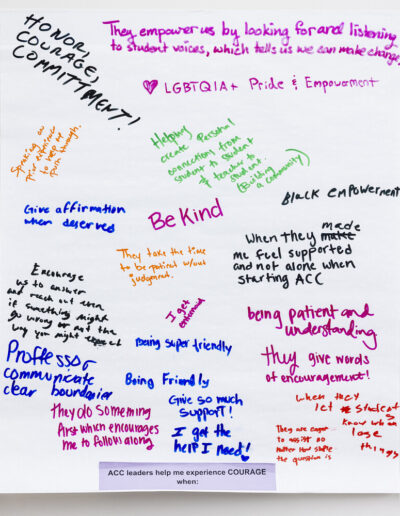 HONOR,
COURAGE,
COMMITTMENT!
They empower us by looking for and listening
to student voices, which tells us we can make change
♡ LGBTQIA+ Pride & Empowerment
Speaking on
Prior experience
to help me
push through.
Helping
create personal
connections from
student to student
& teacher to
student.
(Building
a community)
Black Empowerment
Give affirmation
when deserves
Be Kind
When they made
me feel supported
and not alone when
starting ACC
They take the time
to be patient w/out
judgement.
Encourage
us to answer
and reach out even
if something might
go wrong or not the
way you might expect
I get
being patient and
understanding
Being super friendly
Proffessor
communicate
clear boundaries
they give words
of encouragement!
Being Friendly
Give so much
support!
when they
let student
know when
lose
things
they do something
first which encourages
me to follow along
I get the
help I need!
They are eager
to assist no
matter how simple
the question is
ACC leaders help me experience COURAGE
when: